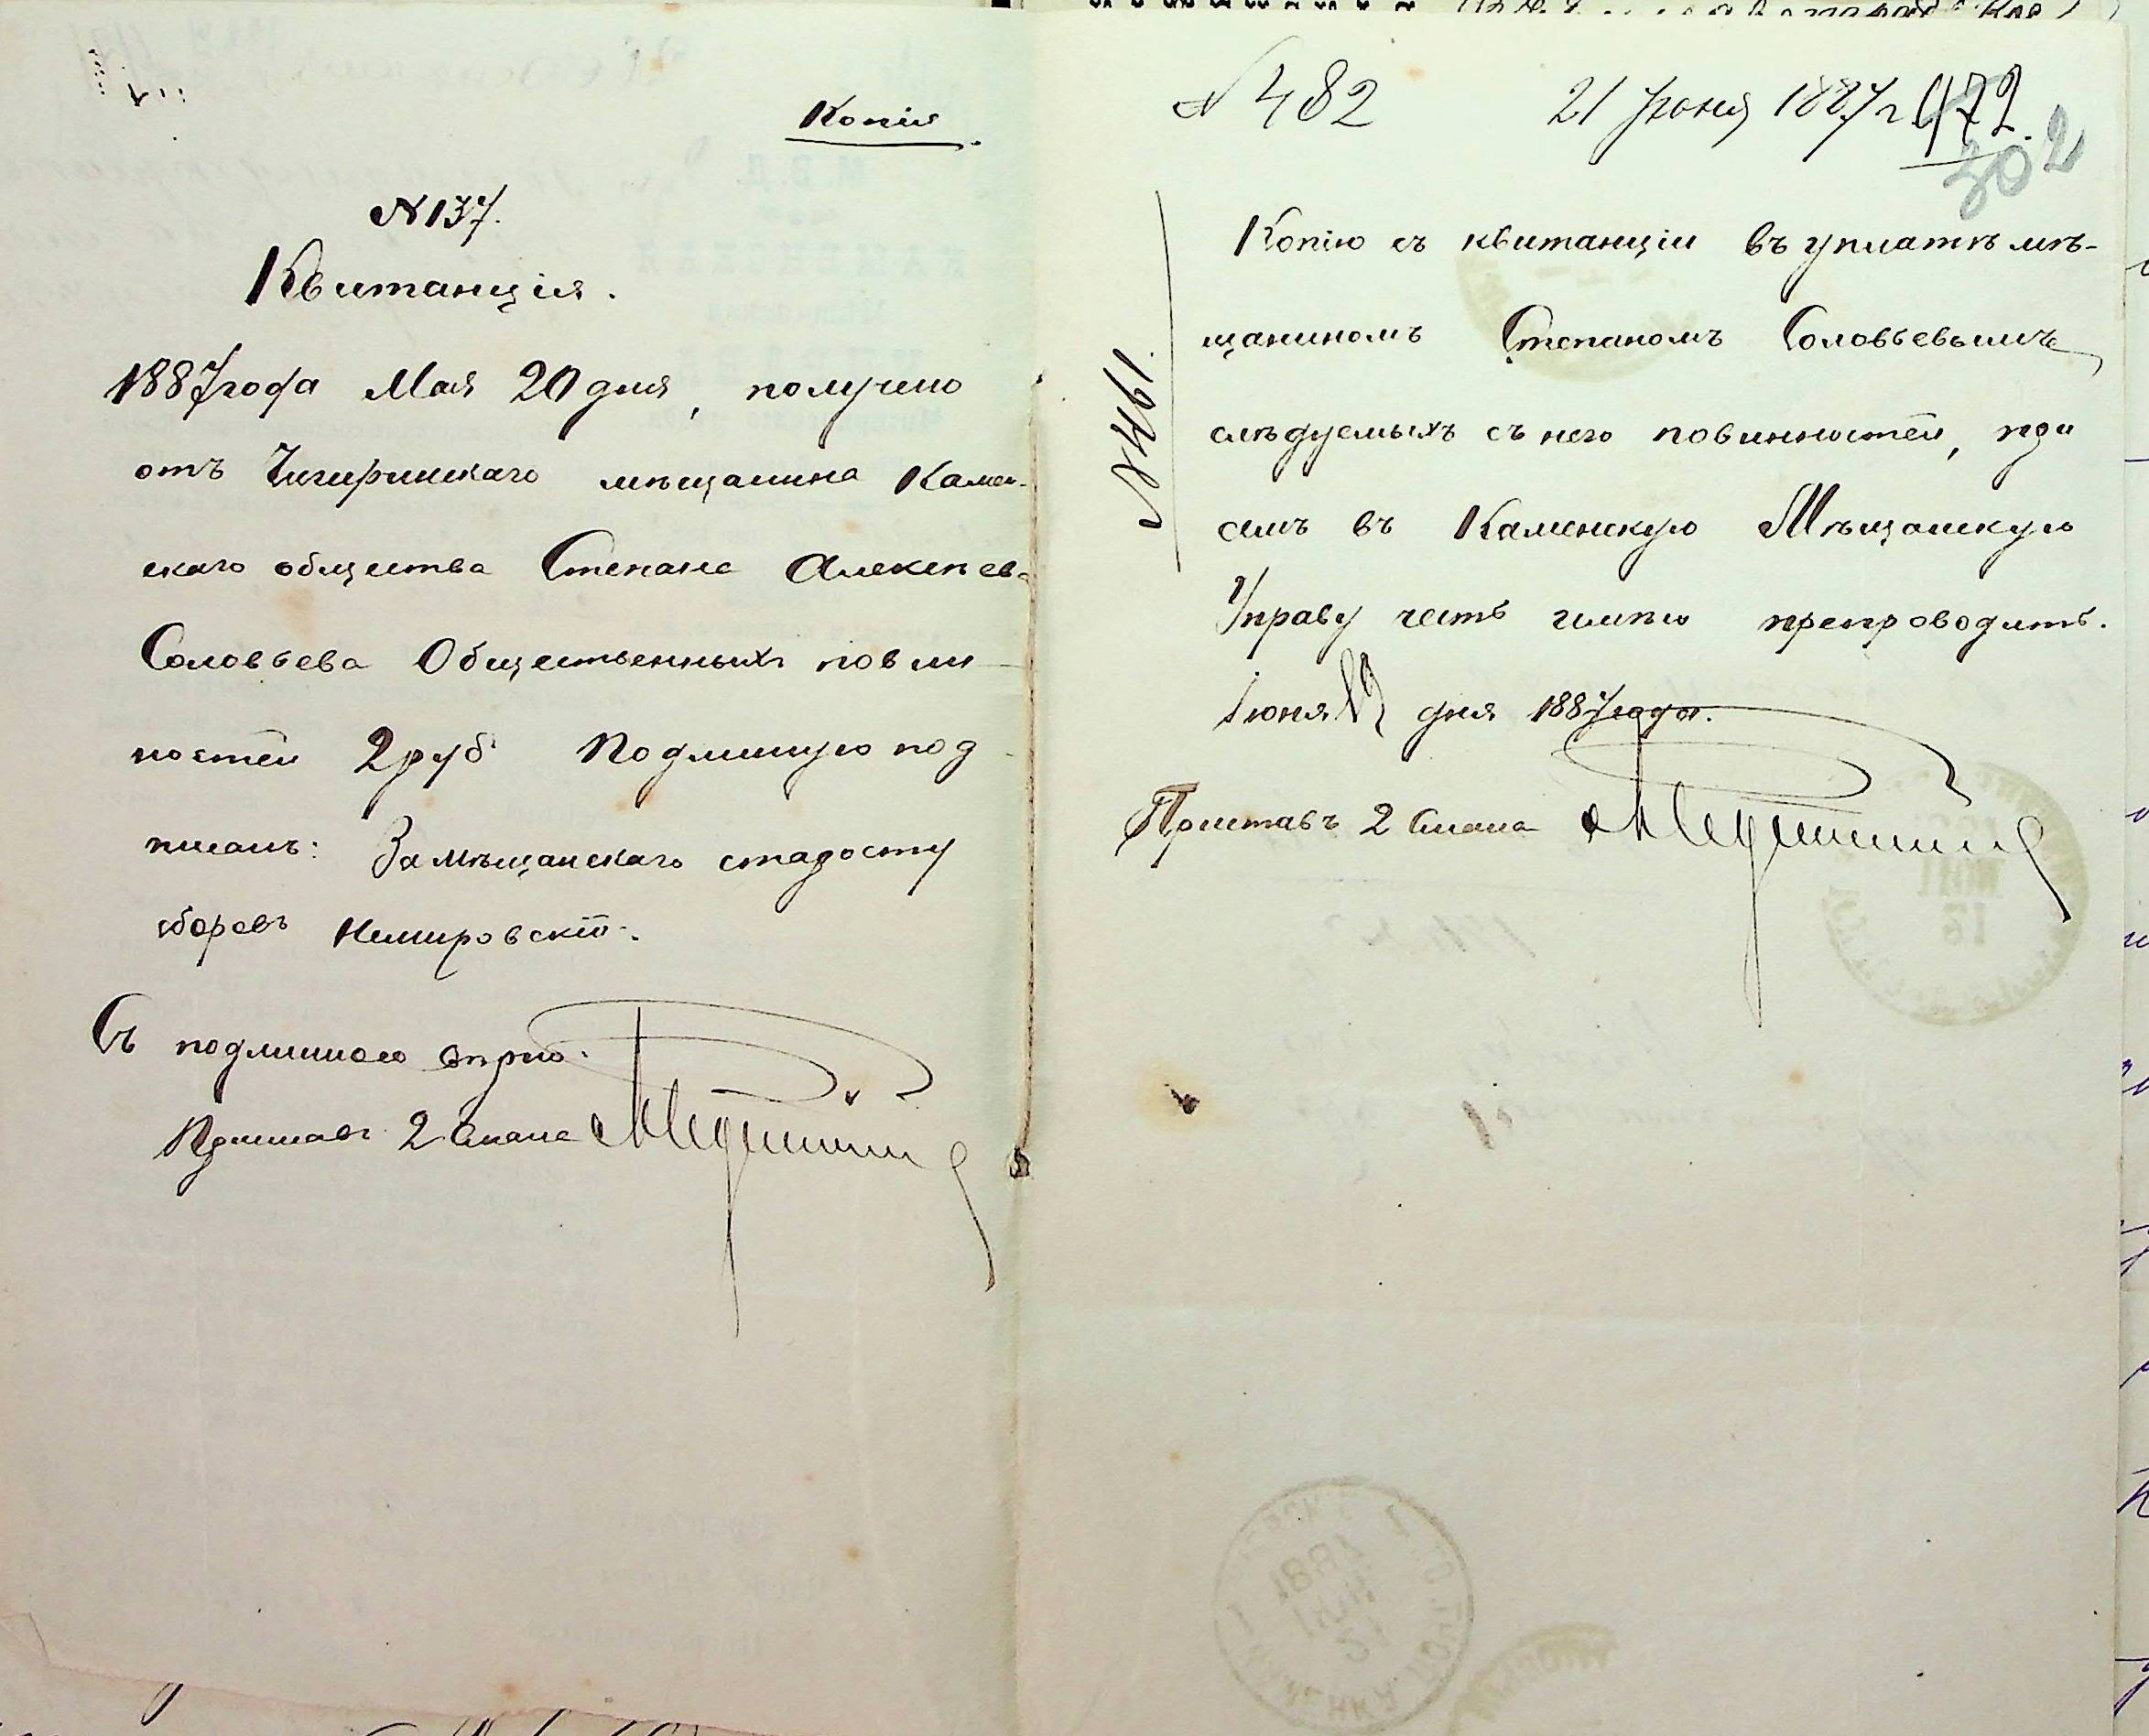 Копія
№ 137.
Квитанція.
1887 года Мая 20 дня, получено
отъ Чигиринскаго мѣщанина Камен-
скаго общества Степана Алексѣева
Соловьева Общественныхъ повин-
ностей 2 руб Подлиную под
писалъ: За Мѣщанскаго старосту
сборщ Немировскій.
Съ подлиною вѣрно:
Приставъ 2 Стана
№ 482 21 Іюня 1887 г. 472.
302
Копію съ квитанціи въ уплатѣ мѣ-
щаниномъ Степаномъ Соловьевымъ
слѣдуемыхъ съ него повинностей, при
семъ въ Каменскую Мѣщанскую
Управу честь имѣю препроводить.
Іюня 19 дня 1887 года.
Приставъ 2 Стана